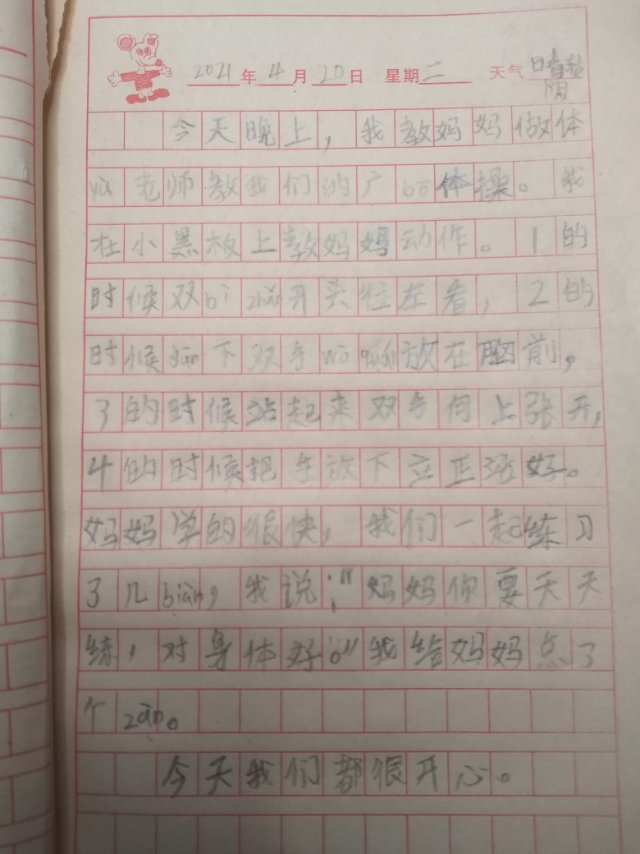 2021年4月20日 星期二 天气晴转
阴
今天晚上，我教妈妈做体
yù 老师教我们的广bō体操。我
在小黑板上教妈妈动作。1的
时候双bì zhǎn开头往左看，2的
时候dūn下双手wò quán放在胸前，
3的时候站起来双手向上张开，
4的时候把手放下立正站好。
妈妈学的很快，我们一起练习
了几biàn，我说："妈妈你要天天
练，对身体好ò"我给妈妈点了
个zàn。
今天我们都很开心。